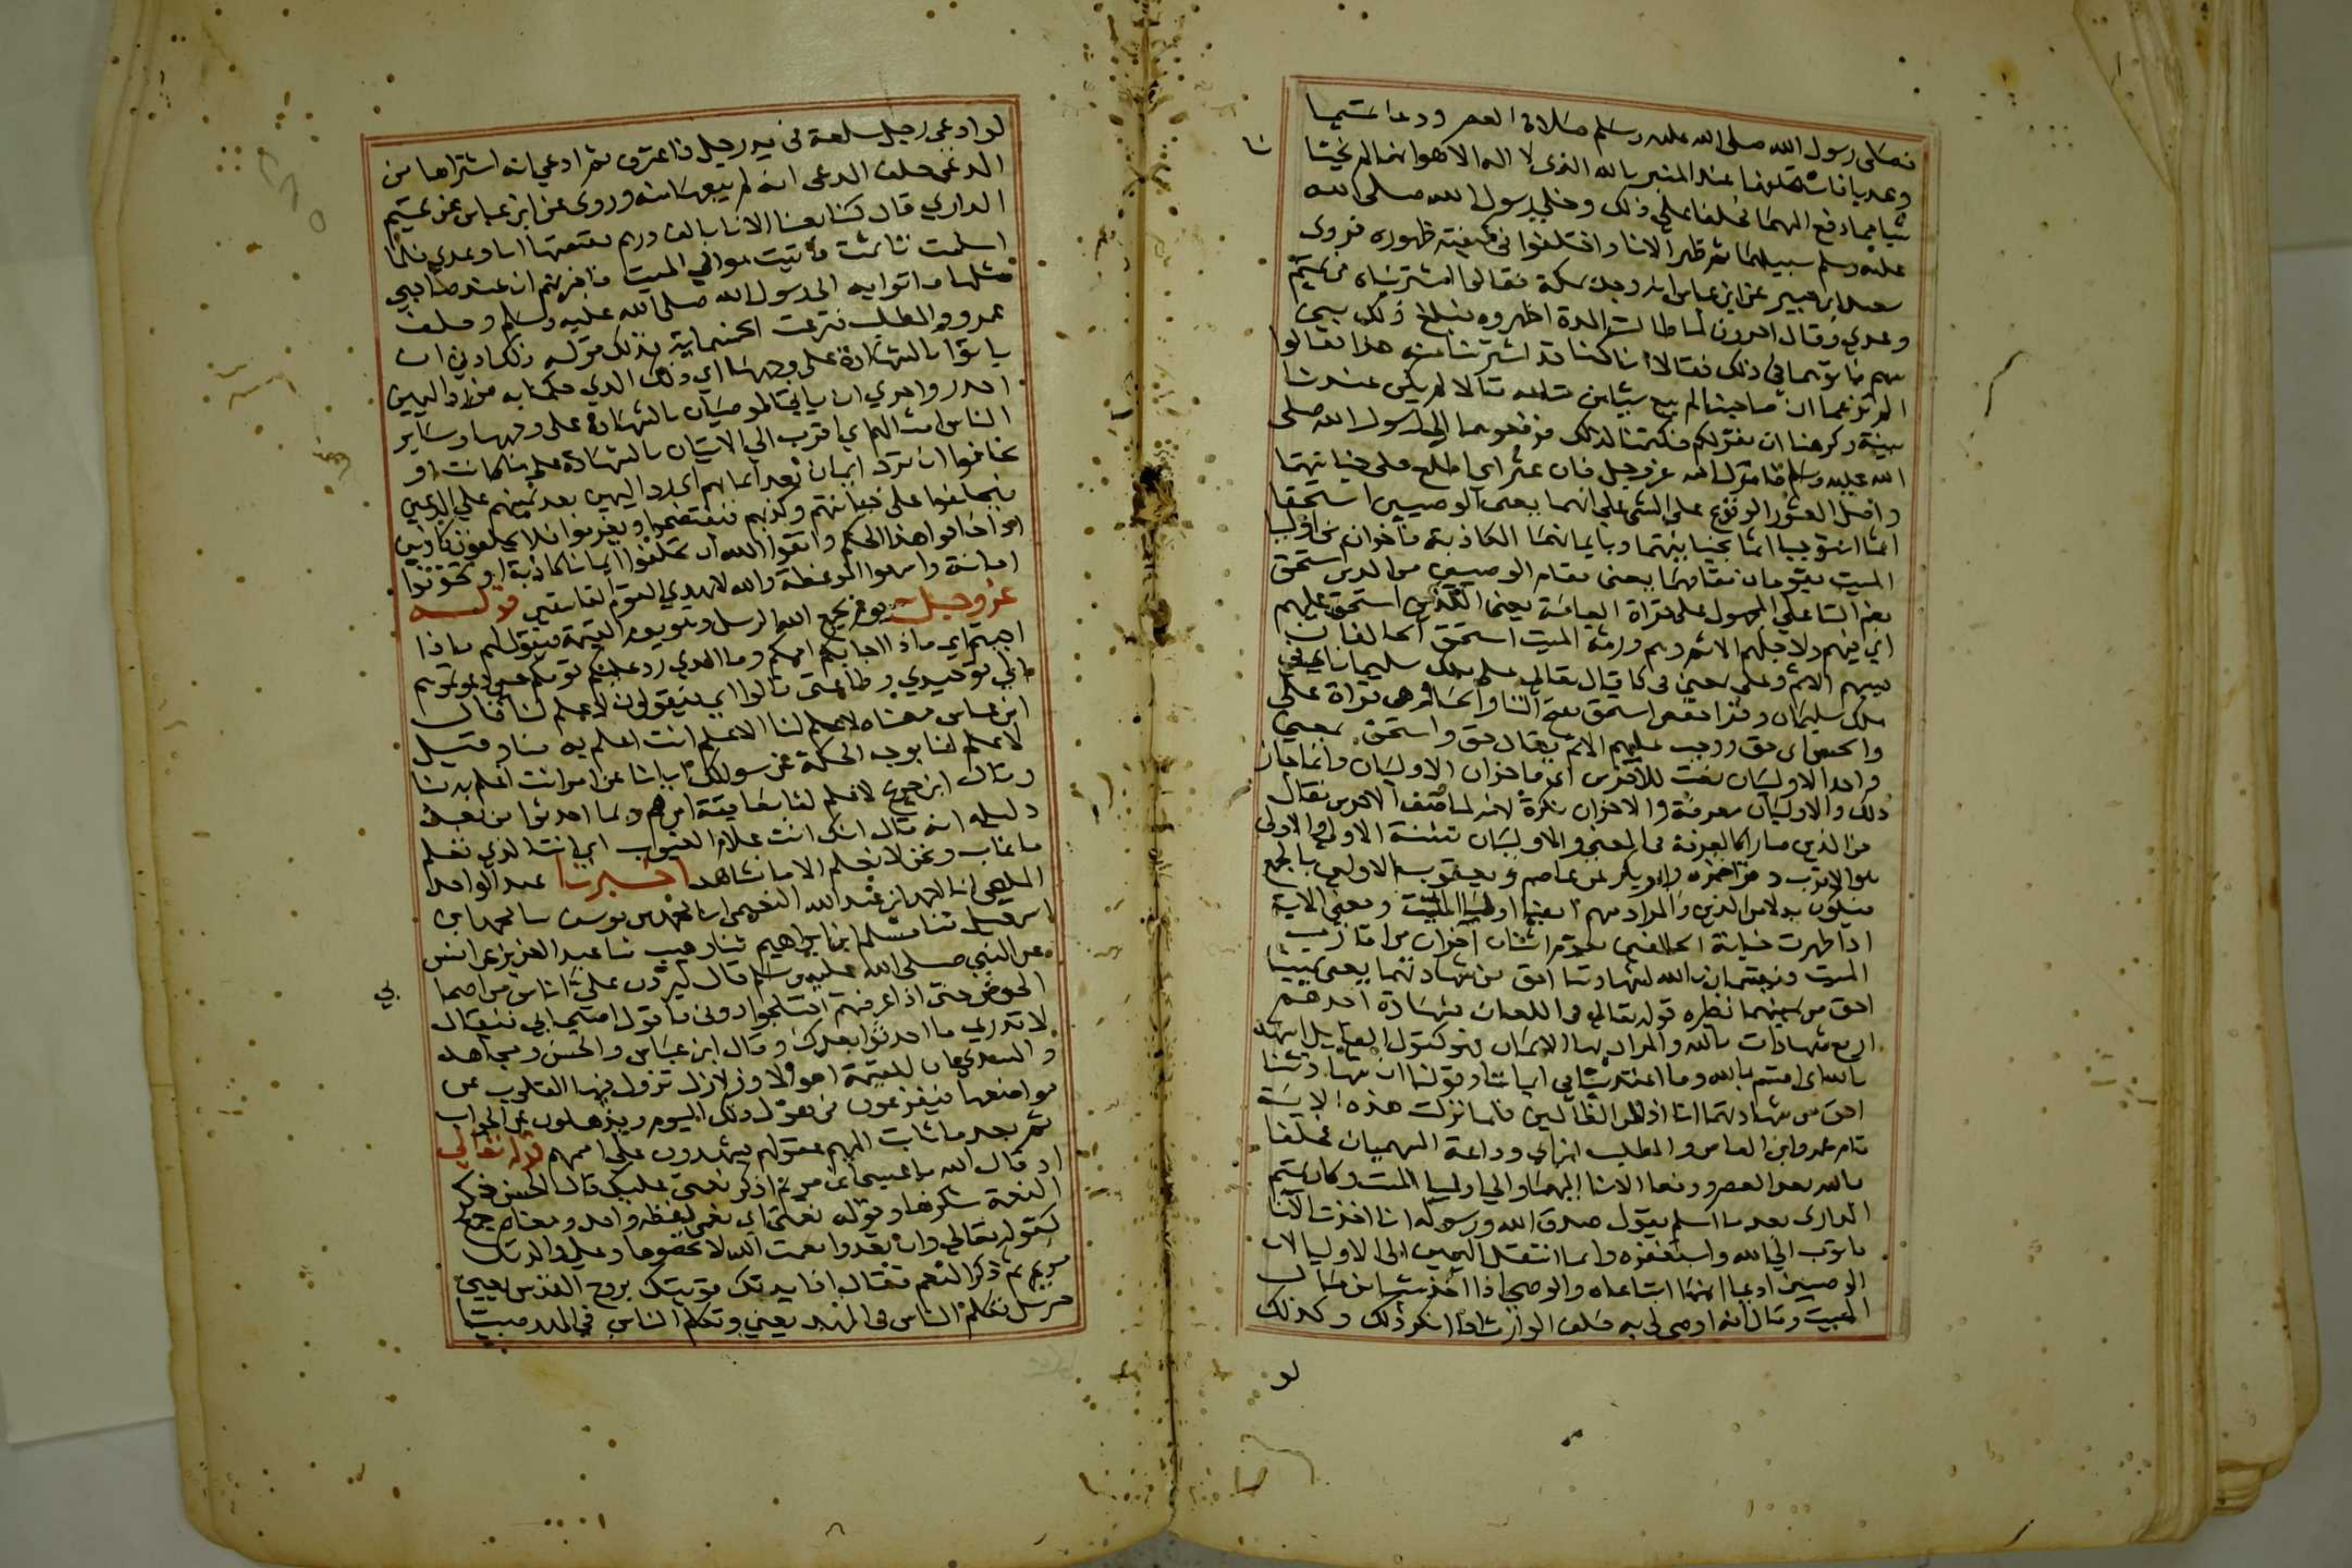 فصلى رسول الله صلى الله عليه وسلم صلاة العصر ودعا تميما
وعديا فاستحلفهما عند المنبر بالله الذى لا اله الا هو انهما لم يختانا
شيا مما دفع اليهما فحلفا على ذلك وخلى رسول الله صلى الله
عليه وسلم سبيلهما ثم ظهر الانا واختلفوا فى كيفية ظهوره فروى
سعيد ابن جبير عن ابن عباس انه وجد بمكة فقالوا اشتريناه من تميم
وعدي وقال اخرون لما طالت المدة اظهروه فبلغ ذلك بنى
سهم فاتوهما فى ذلك فقالا انا كنا قد اشترينا منه هذا فقالوا
الم تزعما ان صاحبنا لم يبع شيئا من متاعه قالا لم يكن عندنا
بينة وكرهنا ان نقر لكم فكتمنا لذلك فرفعوهما الى رسول الله صلى
الله عليه وسلم فانزل الله عز وجل فان عثر اي اطلع على خيانتهما
واصل العثور الوقوع على الشى على انهما يعنى الوصيين استحقا
اثما استوجبا اثما بخيانتهما وبايمانهما الكاذبة فآخران من اوليا
الميت يقومان مقامهما يعنى مقام الوصيين من الذين استحق
بضم التا على المجهول على قراة العامة يعنى الذين استحق عليهم
اي فيهم ولاجلهم الاثم وهم ورثة الميت استحق الحالفان
بسببهم الاثم وعلى بمعنى فى كما قال تعالى على ملك سليمان اي فى
ملك سليمان وقرا حفص استحق بفتح التا والحا وهى قراة على
والحسن اى حق ووجب عليهم الاثم يقال حق واستحق بمعنى
واحد الاوليان نعت للآخران اى فاخران الاوليان وانما جاز
ذلك والاوليان معرفة والاخران نكرة لانه لما وصف الاخرين فقال
من الذين صارا كالمعرفة فى المعنى والاوليان تثنية الاولى والاولى
هو الاقرب وقرا حمزه وابو بكر عن عاصم ويعقوب الاولين بالجمع
فيكون بدلا من الذين والمراد منهم ايضا اوليا الميت ومعنى الاية
اذا ظهرت خيانة الحالفين يقوم اثنان آخران من اقارب
الميت فيقسمان بالله لشهادتنا احق من شهادتهما يعنى يميننا
احق من يمينهما نظيره قوله تعالى فى اللعان فشهادة احدهم
اربع شهادات بالله والمراد بها الايمان فهو كقول القايل اشهد
بالله اى اقسم بالله وما اعتدينا فى ايماننا وقولنا ان شهادتنا
احق من شهادتهما انا اذا لمن الظالمين فلما نزلت هذه الاية
قام عمرو ابن العاص والمطلب ابن ابي وداعة السهميان فحلفا
بالله بعد العصر ودفعا الانا اليهما والى اوليا الميت وكان تميم
الدارى بعد ما اسلم يقول صدق الله ورسوله انا اخذت الانا
فاتوب الى الله واستغفره وانما انتقل اليمين الى الاوليا لان
الوصيين ادعيا انهما ابتاعاه والوصى اذا اخذ شيئا من مال
الميت وقال انه اوصى لى به حلف الوارث اذا انكر ذلك وكذلك
لو
لو ادعى رجل سلعة فى يد رجل فاعترف ثم ادعي انه اشتراها من
المدعى حلف المدعى انه لم يبعها منه وروى عن ابن عباس عن تميم
الداري قال كنا بعنا الانا بالف درهم فقسمتها انا وعدي فلما
اسلمت تاثمت فاتيت موالي الميت فاخبرتهم ان عند صاحبي
مثلها فاتوا به الى رسول الله صلى الله عليه وسلم وحلف
عمرو والمطلب فنزعت الخمسماية فذلك قوله ذلك ادنى ان
ياتوا بالشهادة على وجهها اي ذلك الذي حكمنا به من رد اليمين
اجدر واحري ان ياتى الموصيان بالشهادة على وجهها وساير
الناس امثالهم اي اقرب الى الاتيان بالشهادة على ما كانت او
يخافوا ان ترد ايمان بعد ايمانهم اي رد اليمين بعد يمينهم على المدعين
فيحلفوا على خيانتهم وكذبهم فيفتضحوا ويغرموا فلا يحلفون كاذبين
اذا خافوا هذا الحكم واتقوا الله ان تحلفوا ايمانا كاذبة او تخونوا
امانة واسمعوا الموعظة والله لا يهدي القوم الفاسقين قوله
عز وجل يوم يجمع الله الرسل وهو يوم القيمة فيقول لهم ماذا
اجبتم اي ماذا اجابكم اممكم وما الذي رد عليكم قومكم حين دعوتموهم
الى توحيدي وطاعتى قالوا اي فيقولون لا علم لنا قال
ابن عباس معناه لا علم لنا الا علم انت اعلم به منا وقيل
لا علم لنا بوجه الحكمة عن سوالك ايانا عن امر انت اعلم به منا
وقال ابن جريج لا علم لنا بعاقبة امرهم وبما احدثوا من بعد
دليله انه قال انك انت علام الغيوب اي انت الذي تعلم
ما غاب ونحن لا نعلم الا ما نشاهد اخبرنا عبد الواحد
المليحى انا احمد بن عبد الله النعيمى انا محمد بن يوسف نا محمد ابن
اسمعيل ثنا مسلم ابن ابراهيم ثنا وهيب ثنا عبد العزيز عن انس
عن النبي صلى الله عليه وسلم قال ليردن على اناس من اصحا
بي
الحوض حتى اذا عرفتهم اختلجوا دونى فاقول اصحابي فيقال
لا تدري ما احدثوا بعدك وقال ابن عباس والحسن ومجاهد
والسدي ان للقيمة اهوالا وزلازل تزول فيها القلوب عن
مواضعها فيفزعون من هول ذلك اليوم ويذهلون عن الجواب
ثم بعد ما ثابت اليهم عقولهم يشهدون على اممهم قوله تعالى
اذ قال الله يا عيسى ابن مريم اذكر نعمتي عليك قال الحسن ذكر
النعمة شكرها وقوله نعمتى اي نعمى لفظه واحد ومعناه جمع
كقوله تعالى وان تعدوا نعمت الله لا تحصوها وعلى والدتك
مريم ثم ذكر النعم فقال اذ ايدتك قويتك بروح القدس يعنى
جبريل تكلم الناس فى المهد يعنى وتكلم الناس في المهد صبيا